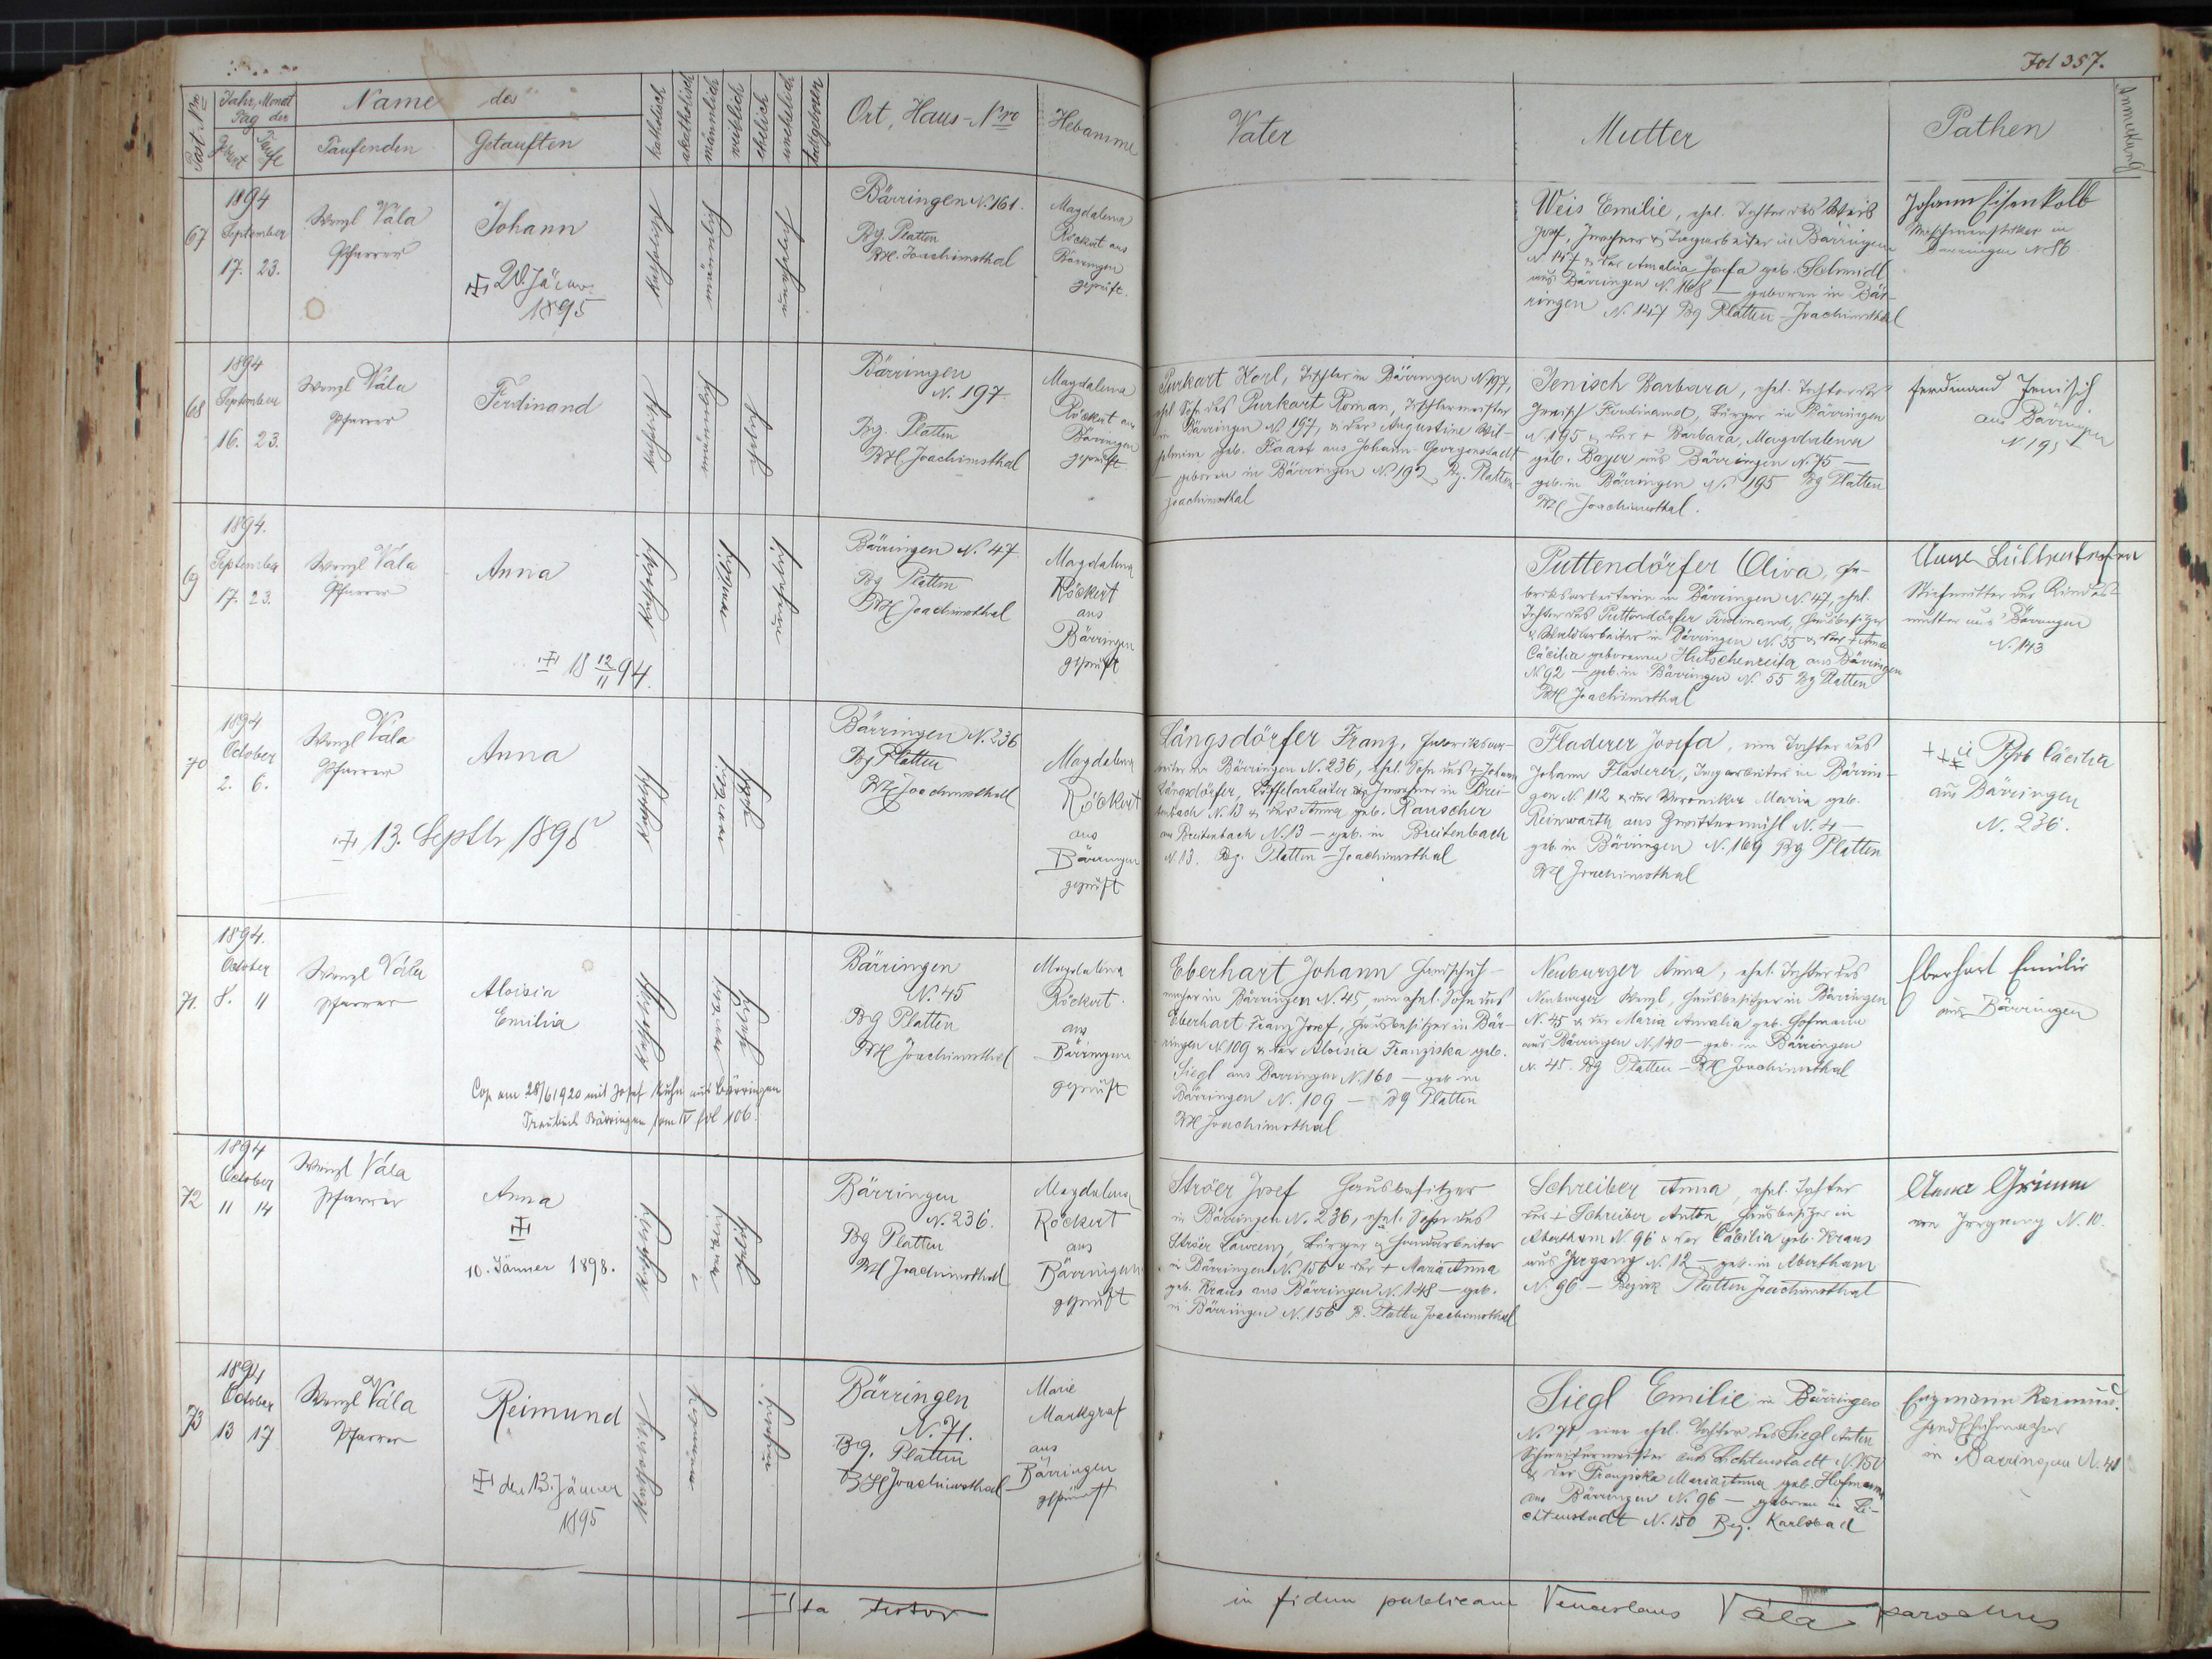 Fol 357.
Post Nro
Jahr, Monat
Tag der
Geburt
Taufe
Name des
Taufenden
Getauften
katholisch
akatholisch
männlich
weiblich
ehelich
unehelich
todtgeboren
Ort, Haus-Nro
Hebamme
Vater
Mutter
Pathen
Anmerkung
67
1894
September
17. 23.
Wenzl Vála
Pfarrer
Johann
1895
katholisch
männlich
unehelich
Bärringen N. 161.
Bg. Platten
BH. Joachimsthal
Magdalena
Röckert aus
Bärringen
geprüft.
Weis Emilie, ehel. Tochter des Weis
Josef, Inwohner & Tagarbeiter in Bärringen
N 147 & der Amalia Josefa geb. Schmidl
aus Bärringen N. 168 — geboren in Bär-
ringen N. 147 Bg Platten - Joachimsthal
Johann Eisenkolb
in
Bärringen N 86
68
1894
September
16. 23.
Wenzl Vála
Pfarrer
Ferdinand
katholisch
männlich
ehelich
Bärringen
N. 197.
Bg. Platten
BH Joachimsthal
Magdalena
Röckert aus
Bärringen
geprüft.
Purkart Karl, Tischler in Bärringen N 197,
ehel Sohn des Purkart Roman, Tischlermeister
in Bärringen N 197, & der Augustine Wil-
helmine geb. Haast aus Johann-Georgenstadt
— geboren in Bärringen N. 192, Bg. Platten-
Joachimsthal
Jenisch Barbara, ehel. Tochter des
Jenisch Ferdinand, Bürger in Bärringen
N. 195 & der + Barbara, Magdalena
geb. Bayer aus Bärringen N. 75 —
geb. in Bärringen N. 195 Bg Platten
BH Joachimsthal.
Ferdinand Jenisch
aus Bärringen
N 195
69
1894.
September
17. 23.
Wenzl Vála
Pfarrer
Anna
18 12/11 94.
katholisch
weiblich
unehelich
Bärringen N. 47
Bg Platten
BH Joachimsthal
Magdalena
Röckert
aus
Bärringen
geprüft
Puttendörfer Oliva, Fa-
briksarbeiterin in Bärringen N. 47, ehel.
Tochter des Puttendörfer Ferdinand, Hausbesitzer
& Waldarbeiter in Bärringen N. 55 & der + Anna
Cäcilia geborenen Hutschenreiter aus Bärringen
N 92 — geb. in Bärringen N. 55 Bg Platten
BH Joachimsthal
Stiefmutter der Kindes-
mutter aus Bärringen
N. 143
70
1894
October
2. 6.
Wenzl Vála
Pfarrer
Anna
13. Septbr 1895
katholisch
weiblich
ehelich
Bärringen N. 236
Bg Platten
BH Joachimsthal
Magdalena
Röckert
aus
Bärringen
geprüft
Längsdörfer Franz, Fabriksar-
beiter in Bärringen N. 236, ehel. Sohn des + Johann
Längsdörfer, Löffelarbeiter & Inwohner in Brei-
tenbach N. 13 & der Anna geb. Rauscher
aus Breitenbach N. 13 — geb. in Breitenbach
N 13. Bg. Platten - Joachimsthal
Fladerer Josefa, eine Tochter des
Johann Fladerer, Tagarbeiter in Bärrin-
gen N. 112 & der Veronika Maria geb.
Reinwarth aus Zwittermühl N. 4 —
geb. in Bärringen N. 169 Bg Platten
BH Joachimsthal
+++ Cäcilia
aus Bärringen
N. 236.
71.
1894.
October
8. 11
Wenzl Vála
Pfarrer
Aloisia
Emilia
Cop. am 28/6 1920 mit Josef Kuhn aus Bärringen
Traubuch Bärringen Tom IV fol 106.
katholisch
weiblich
ehelich
Bärringen
N. 45
Bg Platten
BH Joachimsthal
Magdalena
Röckert.
aus
Bärringen
geprüft
Eberhart Johann Handschuh-
macher in Bärringen N. 45, ein ehel. Sohn des
Eberhart Franz Josef, Hausbesitzer in Bär-
ringen N 109 & der Aloisia Franziska geb.
Siegl aus Barringen N. 160 — geb in
Bärringen N. 109 — Bg Platten
BH Joachimsthal
Neuburger Anna, ehel. Tochter des
Neuburger Wenzl, Hausbesitzer in Bärringen
N. 45 & der Maria Amalia geb. Hofmann
aus Bärringen N. 140 — geb. in Bärringen
N. 45. Bg Platten - BH Joachimsthal
Eberhart Emilie
aus Bärringen
72
1894
October
11 14
Wenzl Vála
Pfarrer
Anna
10. Jänner 1898.
katholisch
weiblich
ehelich
Bärringen
N. 236.
Bg Platten
BH Joachimsthal
Magdalena
Röckert
aus
Bärringen
geprüft
Ströer Josef Hausbesitzer
in Bärringen N. 236, ehel. Sohn des
Ströer Lawrenz, Bürger & Handarbeiter
in Bärringen N. 156 & der + Maria Anna
geb. Kraus aus Bärringen N. 148 — geb.
in Bärringen N. 156 B. Platten Joachimsthal
Schreiber Anna, ehel. Tochter
des + Schreiber Anton, Hausbesitzer in
Abertham N. 96 & der Cäcilia geb. Kraus
aus Irrgang N. 12 — geb. in Abertham
N. 96 — Bezirk Platten Joachimsthal
Anna Grimm
von Irrgang N. 10.
73
1894
October
13 17
Wenzl Vála
Pfarrer
Reimund
den 13. Jänner
1895
katholisch
männlich
unehelich
Bärringen
N. 71.
Bg. Platten
BH Joachimsthal
Marie
Markgraf
aus
Bärringen
geprüft
Siegl Emilie in Bärringen
N. 71 eine ehel. Tochter des Siegl Anton
Schneidermeister aus Lichtenstadt N. 150
& der Franziska Maria Anna geb. Hofmann
aus Bärringen N. 96 — geboren in Li-
chtenstadt N. 150 Bez. Karlsbad
Enzmann Reimund.
Handschuhmacher
in Barringen N. 48
Ita testor
in fidem publicam Venceslaus Vála parochus